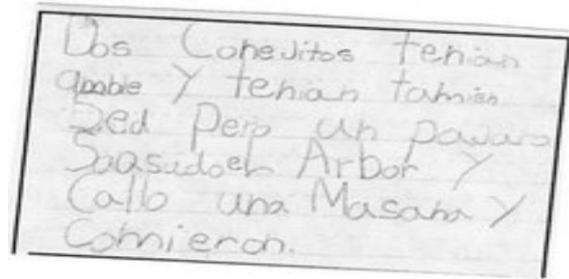 Dos Conejitos tenian
amble y tenian tamien
Sed pero un pajaro
Saasudoel Arbor y
Callo una Masana y
Comieron.